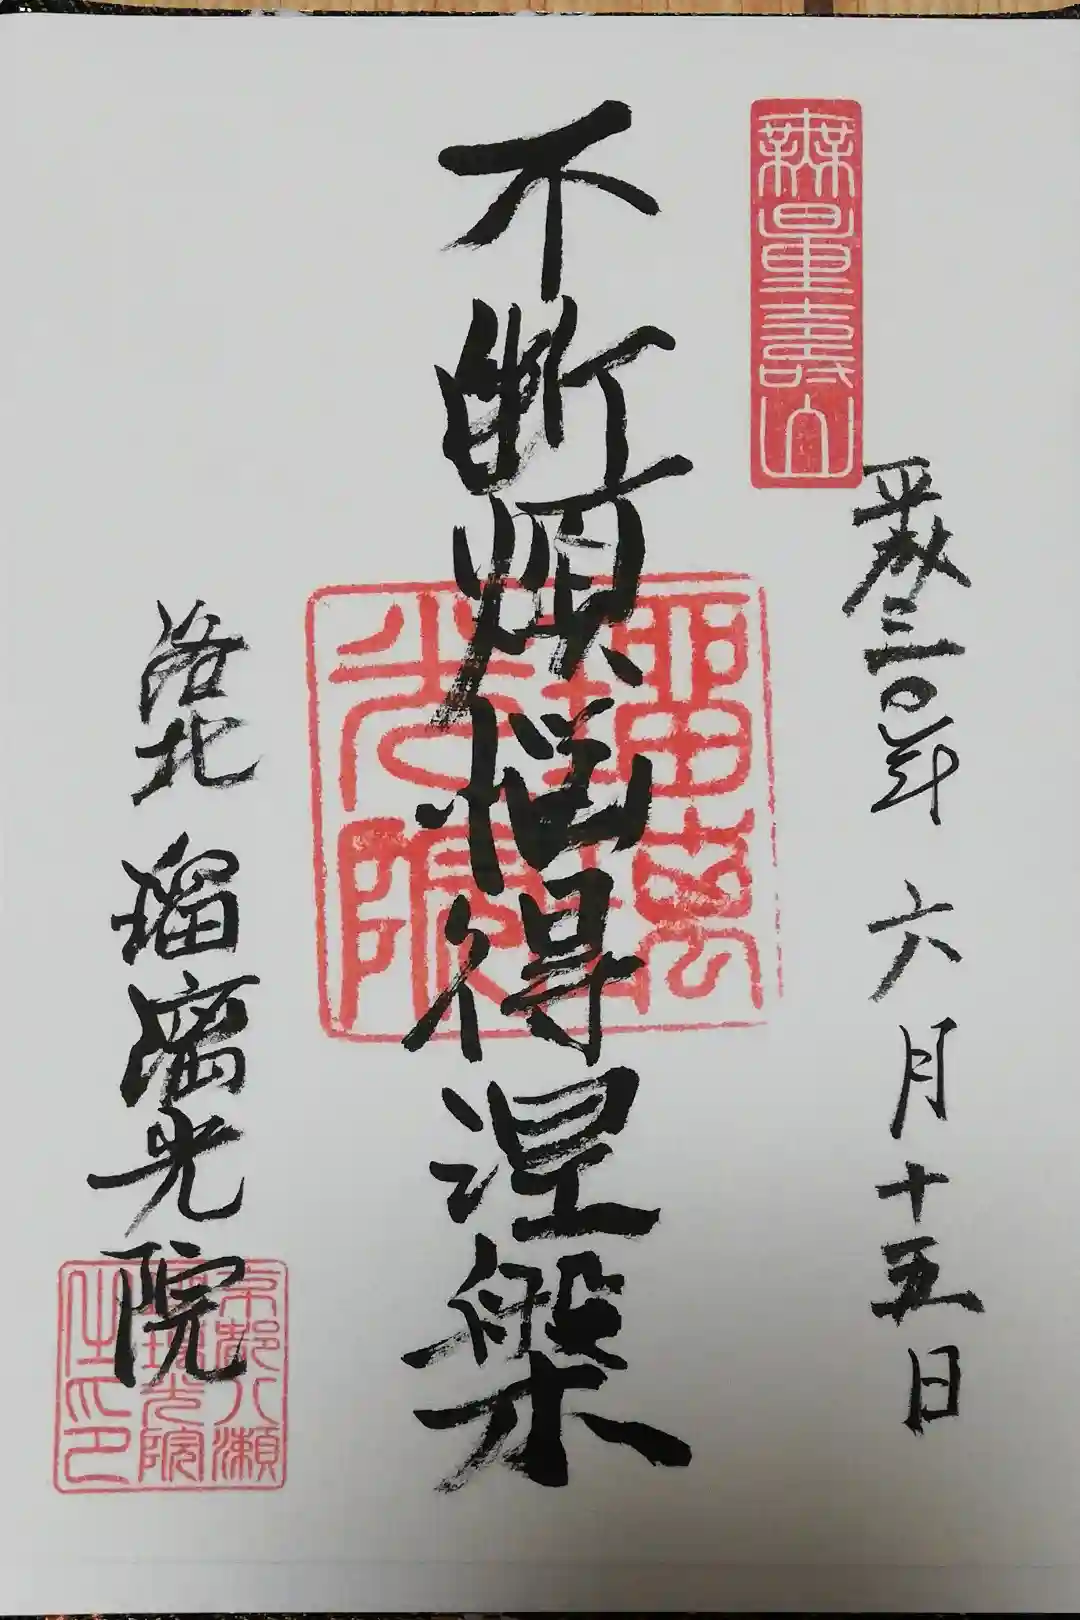 無量壽山
平成三〇年 六月十五日
不断煩悩得涅槃
瑠璃光院
洛北 瑠璃光院
京都八瀬
瑠璃光院
住印